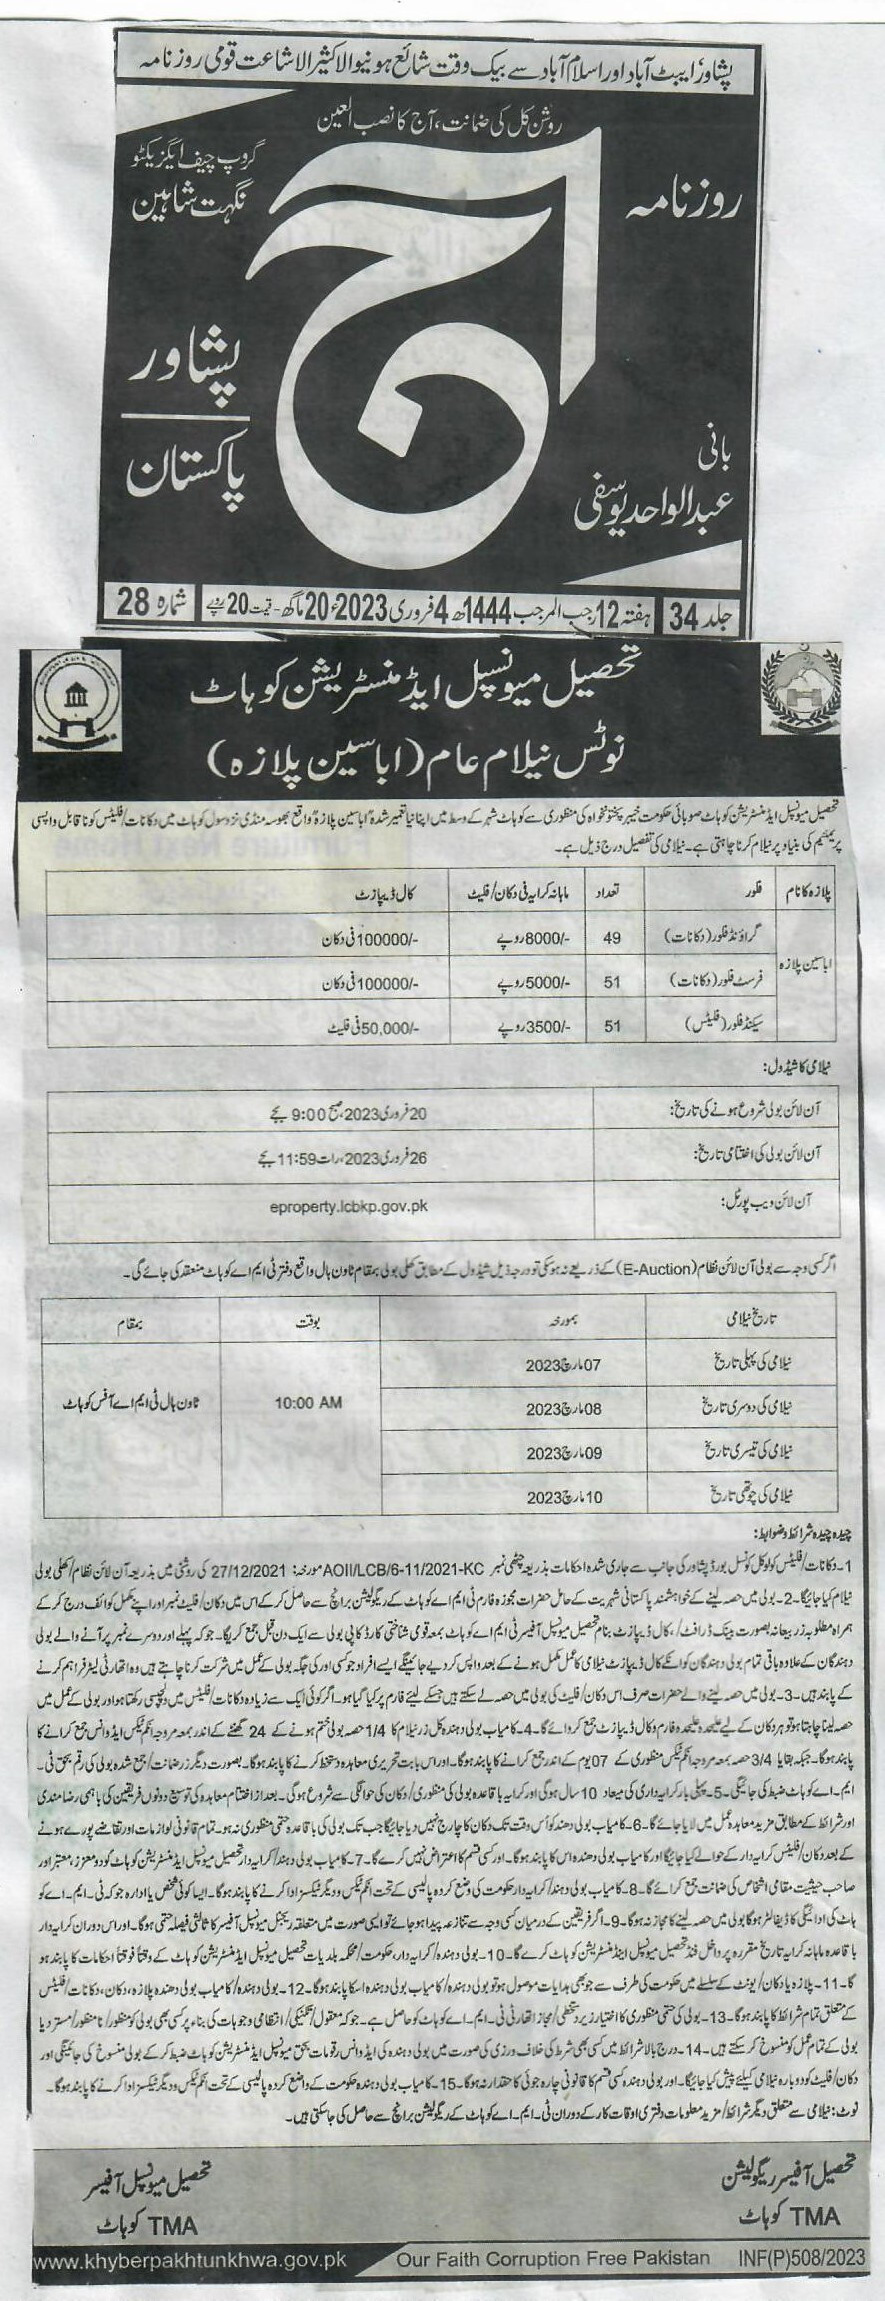 پشاور، ایبٹ آباد اور اسلام آباد سے بیک وقت شائع ہونیوالا کثیر الاشاعت قومی روزنامہ
روشن کل کی ضمانت، آج کا نصب العین
روزنامہ
آج
گروپ چیف ایگزیکٹو
نگہت شاہین
پشاور
پاکستان
بانی
عبدالواحد یوسفی
جلد 34 ہفتہ 12 رجب المرجب 1444ھ 4 فروری 2023ء 20 ماگھ - قیمت 20 روپے شمارہ 28
تحصیل میونسپل ایڈمنسٹریشن کوہاٹ
نوٹس نیلام عام (اباسین پلازہ)
تحصیل میونسپل ایڈمنسٹریشن کوہاٹ صوبائی حکومت خیبر پختونخواہ کی منظوری سے کوہاٹ شہر کے وسط میں اپنا نیا تعمیر شدہ "اباسین پلازہ" واقع بھوسہ منڈی نزد سول کوہاٹ میں دکانات/فلیٹس کو ناقابل واپسی
پریمئیم کی بنیاد پر نیلام کرنا چاہتی ہے۔ نیلامی کی تفصیل درج ذیل ہے۔
پلازہ کا نام فلور تعداد ماہانہ کرایہ فی دکان/فلیٹ کال ڈیپازٹ
اباسین پلازہ گراؤنڈ فلور (دکانات) 49 8000/- روپے 100000/- فی دکان
فرسٹ فلور (دکانات) 51 5000/- روپے 100000/- فی دکان
سیکنڈ فلور (فلیٹس) 51 3500/- روپے 50,000/- فی فلیٹ
نیلامی کا شیڈول:
آن لائن بولی شروع ہونے کی تاریخ: 20 فروری 2023، صبح 9:00 بجے
آن لائن بولی کی اختتامی تاریخ: 26 فروری 2023، رات 11:59 بجے
آن لائن ویب پورٹل: eproperty.lcbkp.gov.pk
اگر کسی وجہ سے بولی آن لائن نظام (E-Auction) کے ذریعے نہ ہو سکی تو درجہ ذیل شیڈول کے مطابق کھلی بولی بمقام ٹاون ہال واقع دفتر ٹی ایم اے کوہاٹ منعقد کی جائے گی۔
تاریخ نیلامی بمورخہ بوقت بمقام
نیلامی کی پہلی تاریخ 07 مارچ 2023 10:00 AM ٹاون ہال ٹی ایم اے آفس کوہاٹ
نیلامی کی دوسری تاریخ 08 مارچ 2023
نیلامی کی تیسری تاریخ 09 مارچ 2023
نیلامی کی چوتھی تاریخ 10 مارچ 2023
چیدہ چیدہ شرائط و ضوابط:
1- دکانات/فلیٹس کو لوکل کونسل بورڈ پشاور کی جانب سے جاری شدہ احکامات بذریعہ چٹھی نمبر AOII/LCB/6-11/2021-KC مورخہ: 27/12/2021 کی روشنی میں بذریعہ آن لائن نظام/کھلی بولی
نیلام کیا جائیگا۔ 2- بولی میں حصہ لینے کے خواہشمند پاکستانی شہریت کے حامل حضرات مجوزہ فارم ٹی ایم اے کوہاٹ کے ریگولیشن برانچ سے حاصل کر کے اس میں دکان/فلیٹ نمبر اور اپنے مکمل کوائف درج کر کے
ہمراہ مطلوبہ زر بیعانہ بصورت بینک ڈرافٹ/کال ڈیپازٹ بنام تحصیل میونسپل آفیسر ٹی ایم اے کوہاٹ بمعہ قومی شناختی کارڈ کاپی بولی سے ایک دن قبل جمع کریگا۔ جو کہ پہلے اور دوسرے نمبر پر آنے والے بولی
دہندگان کے علاوہ باقی تمام بولی دہندگان کو انکے کال ڈیپازٹ نیلامی کا عمل مکمل ہونے کے بعد واپس کر دیے جائینگے ایسے افراد جو کسی اور کی جگہ بولی کے عمل میں شرکت کرنا چاہتے ہیں وہ اتھارٹی لیٹر فراہم کرنے
کے پابند ہیں۔ 3- بولی میں حصہ لینے والے حضرات صرف اس دکان/فلیٹ کی بولی میں حصہ لے سکتے ہیں جسکے لیے فارم پر کیا گیا ہو۔ اگر کوئی ایک سے زیادہ دکانات/فلیٹس میں دلچسپی رکھتا ہو اور بولی کے عمل میں
حصہ لینا چاہتا ہو تو ہر دکان کے لیے علیحدہ علیحدہ فارم و کال ڈیپازٹ جمع کروائے گا۔ 4- کامیاب بولی دہندہ کل زر نیلام کا 1/4 حصہ بولی ختم ہونے کے 24 گھنٹے کے اندر بمعہ مروجہ انکم ٹیکس ایڈوانس جمع کرانے کا
پابند ہوگا۔ جبکہ بقایا 3/4 حصہ بمعہ مروجہ انکم ٹیکس منظوری کے 07 یوم کے اندر جمع کرانے کا پابند ہوگا۔ اور اس بابت تحریری معاہدہ دستخط کرنے کا پابند ہوگا۔ بصورت دیگر زر ضمانت/جمع شدہ بولی کی رقم بحق ٹی۔
ایم۔ اے کوہاٹ ضبط کی جائیگی۔ 5- پہلی بار کرایہ داری کی میعاد 10 سال ہوگی اور کرایہ باقاعدہ بولی کی منظوری/دکان کی حوالگی سے شروع ہوگی۔ بعد از اختتام معاہدہ کی توسیع دونوں فریقین کی باہمی رضامندی
اور شرائط کے مطابق مزید معاہدہ عمل میں لایا جائے گا۔ 6- کامیاب بولی دہندہ کو اس وقت تک دکان کا چارج نہیں دیا جائیگا جب تک بولی کی باقاعدہ حتمی منظوری نہ ہو۔ تمام قانونی لوازمات اور تقاضے پورے ہونے
کے بعد دکان/فلیٹس کرایہ دار کے حوالے کیا جائیگا اور کامیاب بولی دہندہ اس کا پابند ہوگا۔ اور کسی قسم کا اعتراض نہیں کرے گا۔ 7- کامیاب بولی دہندہ/کرایہ دار تحصیل میونسپل ایڈمنسٹریشن کوہاٹ کو دو معزز، معتبر اور
صاحب حیثیت مقامی اشخاص کی ضمانت جمع کرائے گا۔ 8- کامیاب بولی دہندہ/کرایہ دار حکومت کی وضع کردہ پالیسی کے تحت انکم ٹیکس و دیگر ٹیکسز ادا کرنے کا پابند ہوگا۔ ایسا کوئی شخص یا ادارہ جو کہ ٹی۔ ایم۔ اے کو
ہاٹ کی ادائیگی کا ڈیفالٹر ہوگا بولی میں حصہ لینے کا مجاز نہ ہوگا۔ 9- اگر فریقین کے درمیان کسی وجہ سے تنازعہ پیدا ہو جائے تو ایسی صورت میں متعلقہ ریجنل میونسپل آفیسر کا ثالثی فیصلہ حتمی ہوگا۔ اور اس دوران کرایہ دار
باقاعدہ ماہانہ کرایہ تاریخ مقررہ پر داخل فنڈ تحصیل میونسپل ایڈمنسٹریشن کوہاٹ کرے گا۔ 10- بولی دہندہ/کرایہ دار، حکومت/محکمہ بلدیات تحصیل میونسپل ایڈمنسٹریشن کوہاٹ کے وقتاً فوقتاً احکامات کا پابند ہو
گا۔ 11- پلازہ یا دکان/یونٹ کے سلسلے میں حکومت کی طرف سے جو بھی ہدایات موصول ہو تو بولی دہندہ/کامیاب بولی دہندہ اسکا پابند ہوگا۔ 12- بولی دہندہ/کامیاب بولی دہندہ پلازہ، دکان، دکانات/فلیٹس
کے متعلق تمام شرائط کا پابند ہوگا۔ 13- بولی کی حتمی منظوری کا اختیار زیر دستخطی/مجاز اتھارٹی ٹی۔ ایم۔ اے کوہاٹ کو حاصل ہے۔ جو کہ معقول/تکنیکی/انتظامی وجوہات کی بناء پر کسی بھی بولی کو منظور/نامنظور/مسترد یا
بولی کے تمام عمل کو منسوخ کر سکتے ہیں۔ 14- درج بالا شرائط میں کسی بھی شرط کی خلاف ورزی کی صورت میں بولی دہندہ کی ایڈوانس رقومات بحق میونسپل ایڈمنسٹریشن کوہاٹ ضبط کر کے بولی منسوخ کی جائیگی اور
دکان/فلیٹ کو دوبارہ نیلامی کیلئے پیش کیا جائیگا۔ اور بولی دہندہ کسی قسم کا قانونی چارہ جوئی کا حقدار نہ ہوگا۔ 15- کامیاب بولی دہندہ حکومت کے واضع کردہ پالیسی کے تحت انکم ٹیکس و دیگر ٹیکسز ادا کرنے کا پابند ہوگا۔
نوٹ: نیلامی سے متعلق دیگر شرائط/مزید معلومات دفتری اوقات کار کے دوران ٹی۔ ایم۔ اے کوہاٹ کے ریگولیشن برانچ سے حاصل کی جا سکتی ہیں۔
تحصیل آفیسر ریگولیشن
TMA کوہاٹ
تحصیل میونسپل آفیسر
TMA کوہاٹ
www.khyberpakhtunkhwa.gov.pk Our Faith Corruption Free Pakistan INF(P)508/2023